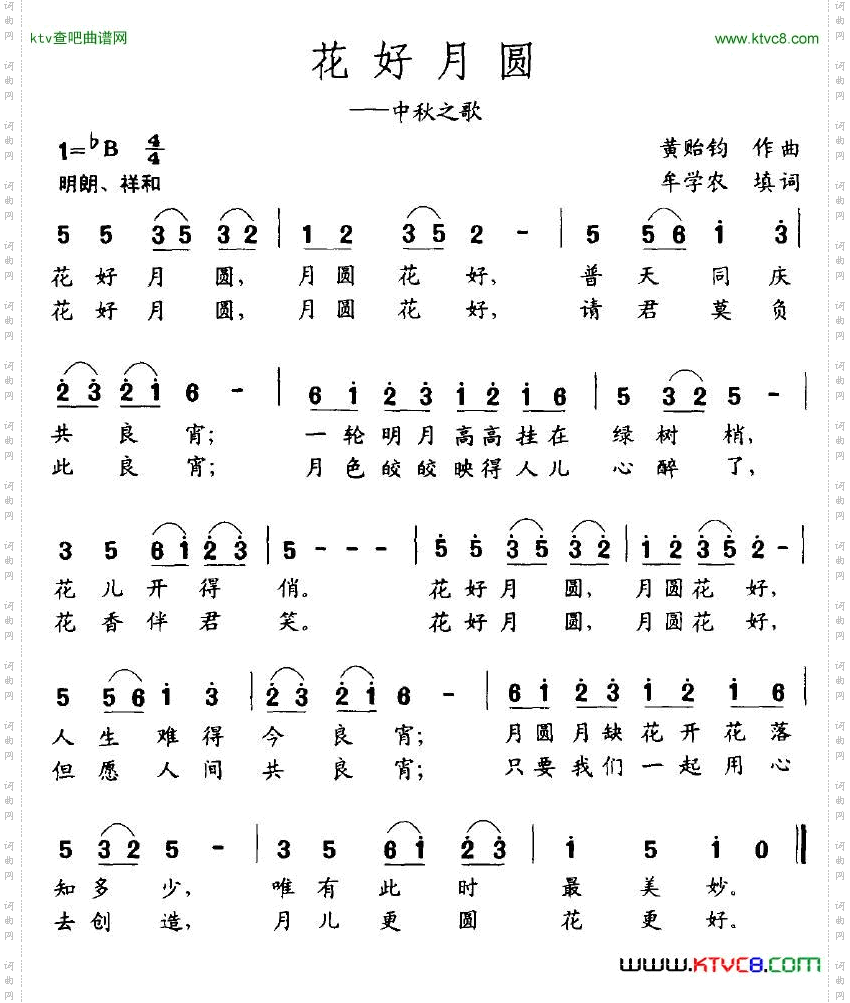 ktv查吧曲谱网
www.ktvc8.com
花好月圆
——中秋之歌
1=♭B 4/4
黄贻钧 作曲
明朗、祥和
牟学农 填词
5 5 3 5 3 2 | 1 2 3 5 2 - | 5 5 6 i 3 |
花好月 圆, 月圆花 好, 普天同庆
花好月 圆, 月圆花 好, 请君莫负
2 3 2 1 6 - | 6 1 2 3 1 2 1 6 | 5 3 2 5 - |
共良宵; 一轮明月高高挂在 绿树梢,
此良宵; 月色皎皎映得人儿 心醉了,
3 5 6 1 2 3 | 5 - - - | 5 5 3 5 3 2 | 1 2 3 5 2 - |
花儿开得 俏。 花好月 圆, 月圆花 好,
花香伴君 笑。 花好月 圆, 月圆花 好,
5 5 6 1 3 | 2 3 2 1 6 - | 6 1 2 3 1 2 1 6 |
人生难得 今良宵; 月圆月缺花开花落
但愿人间 共良宵; 只要我们一起用心
5 3 2 5 - | 3 5 6 1 2 3 | 1 5 1 0 ‖
知多少, 唯有此时 最美妙。
去创造, 月儿更圆 花更好。
www.KTVC8.com
词曲网